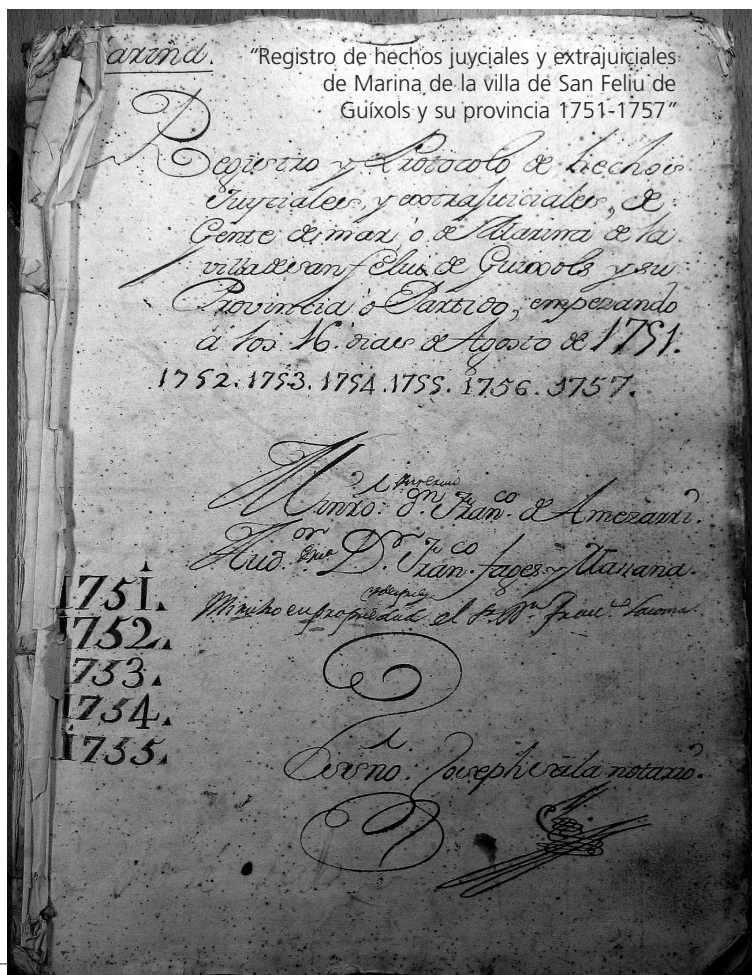 arina.
"Registro de hechos juyciales y extrajuiciales
de Marina de la villa de San Feliu de
Guíxols y su provincia 1751-1757"
Registro y Protocolo de hechos
Juyciales, y extrajuiciales, de
Gente de mar, o de Marina de la
villa de san feliu de Guixols y su
Provincia o Partido, empezando
a los 16. dias de Agosto de 1751.
1752. 1753. 1754. 1755. 1756. 1757.
Minro: Dn Franco. de Amezarri.
Audor. Dr Franco Fages y Massana.
Ministro en propiedad el Sr. Dn. Franco
1751.
1752.
1753.
1754.
1755.
Essno: Joseph notario.